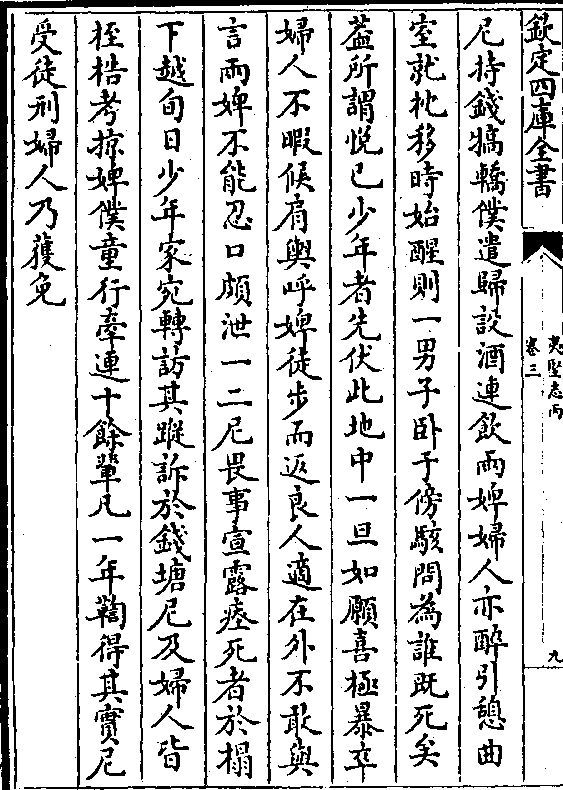 欽定四庫全書
夷堅志丙
卷三
九
尼持錢犒轎僕遣歸設酒連飲兩婢婦人亦醉引憩曲
室就枕移時始醒則一男子卧于傍駭問為誰既死矣
葢所謂悦已少年者先伏此地中一旦如願喜極暴卒
婦人不暇候肩輿呼婢徒步而返良人適在外不敢與
言兩婢不能忍口頗泄一二尼畏事宣露瘞死者於榻
下越旬日少年家宛轉訪其蹤訴於錢塘尼及婦人皆
桎梏考掠婢僕童行牽連十餘輩凡一年鞫得其實尼
受徒刑婦人乃獲免